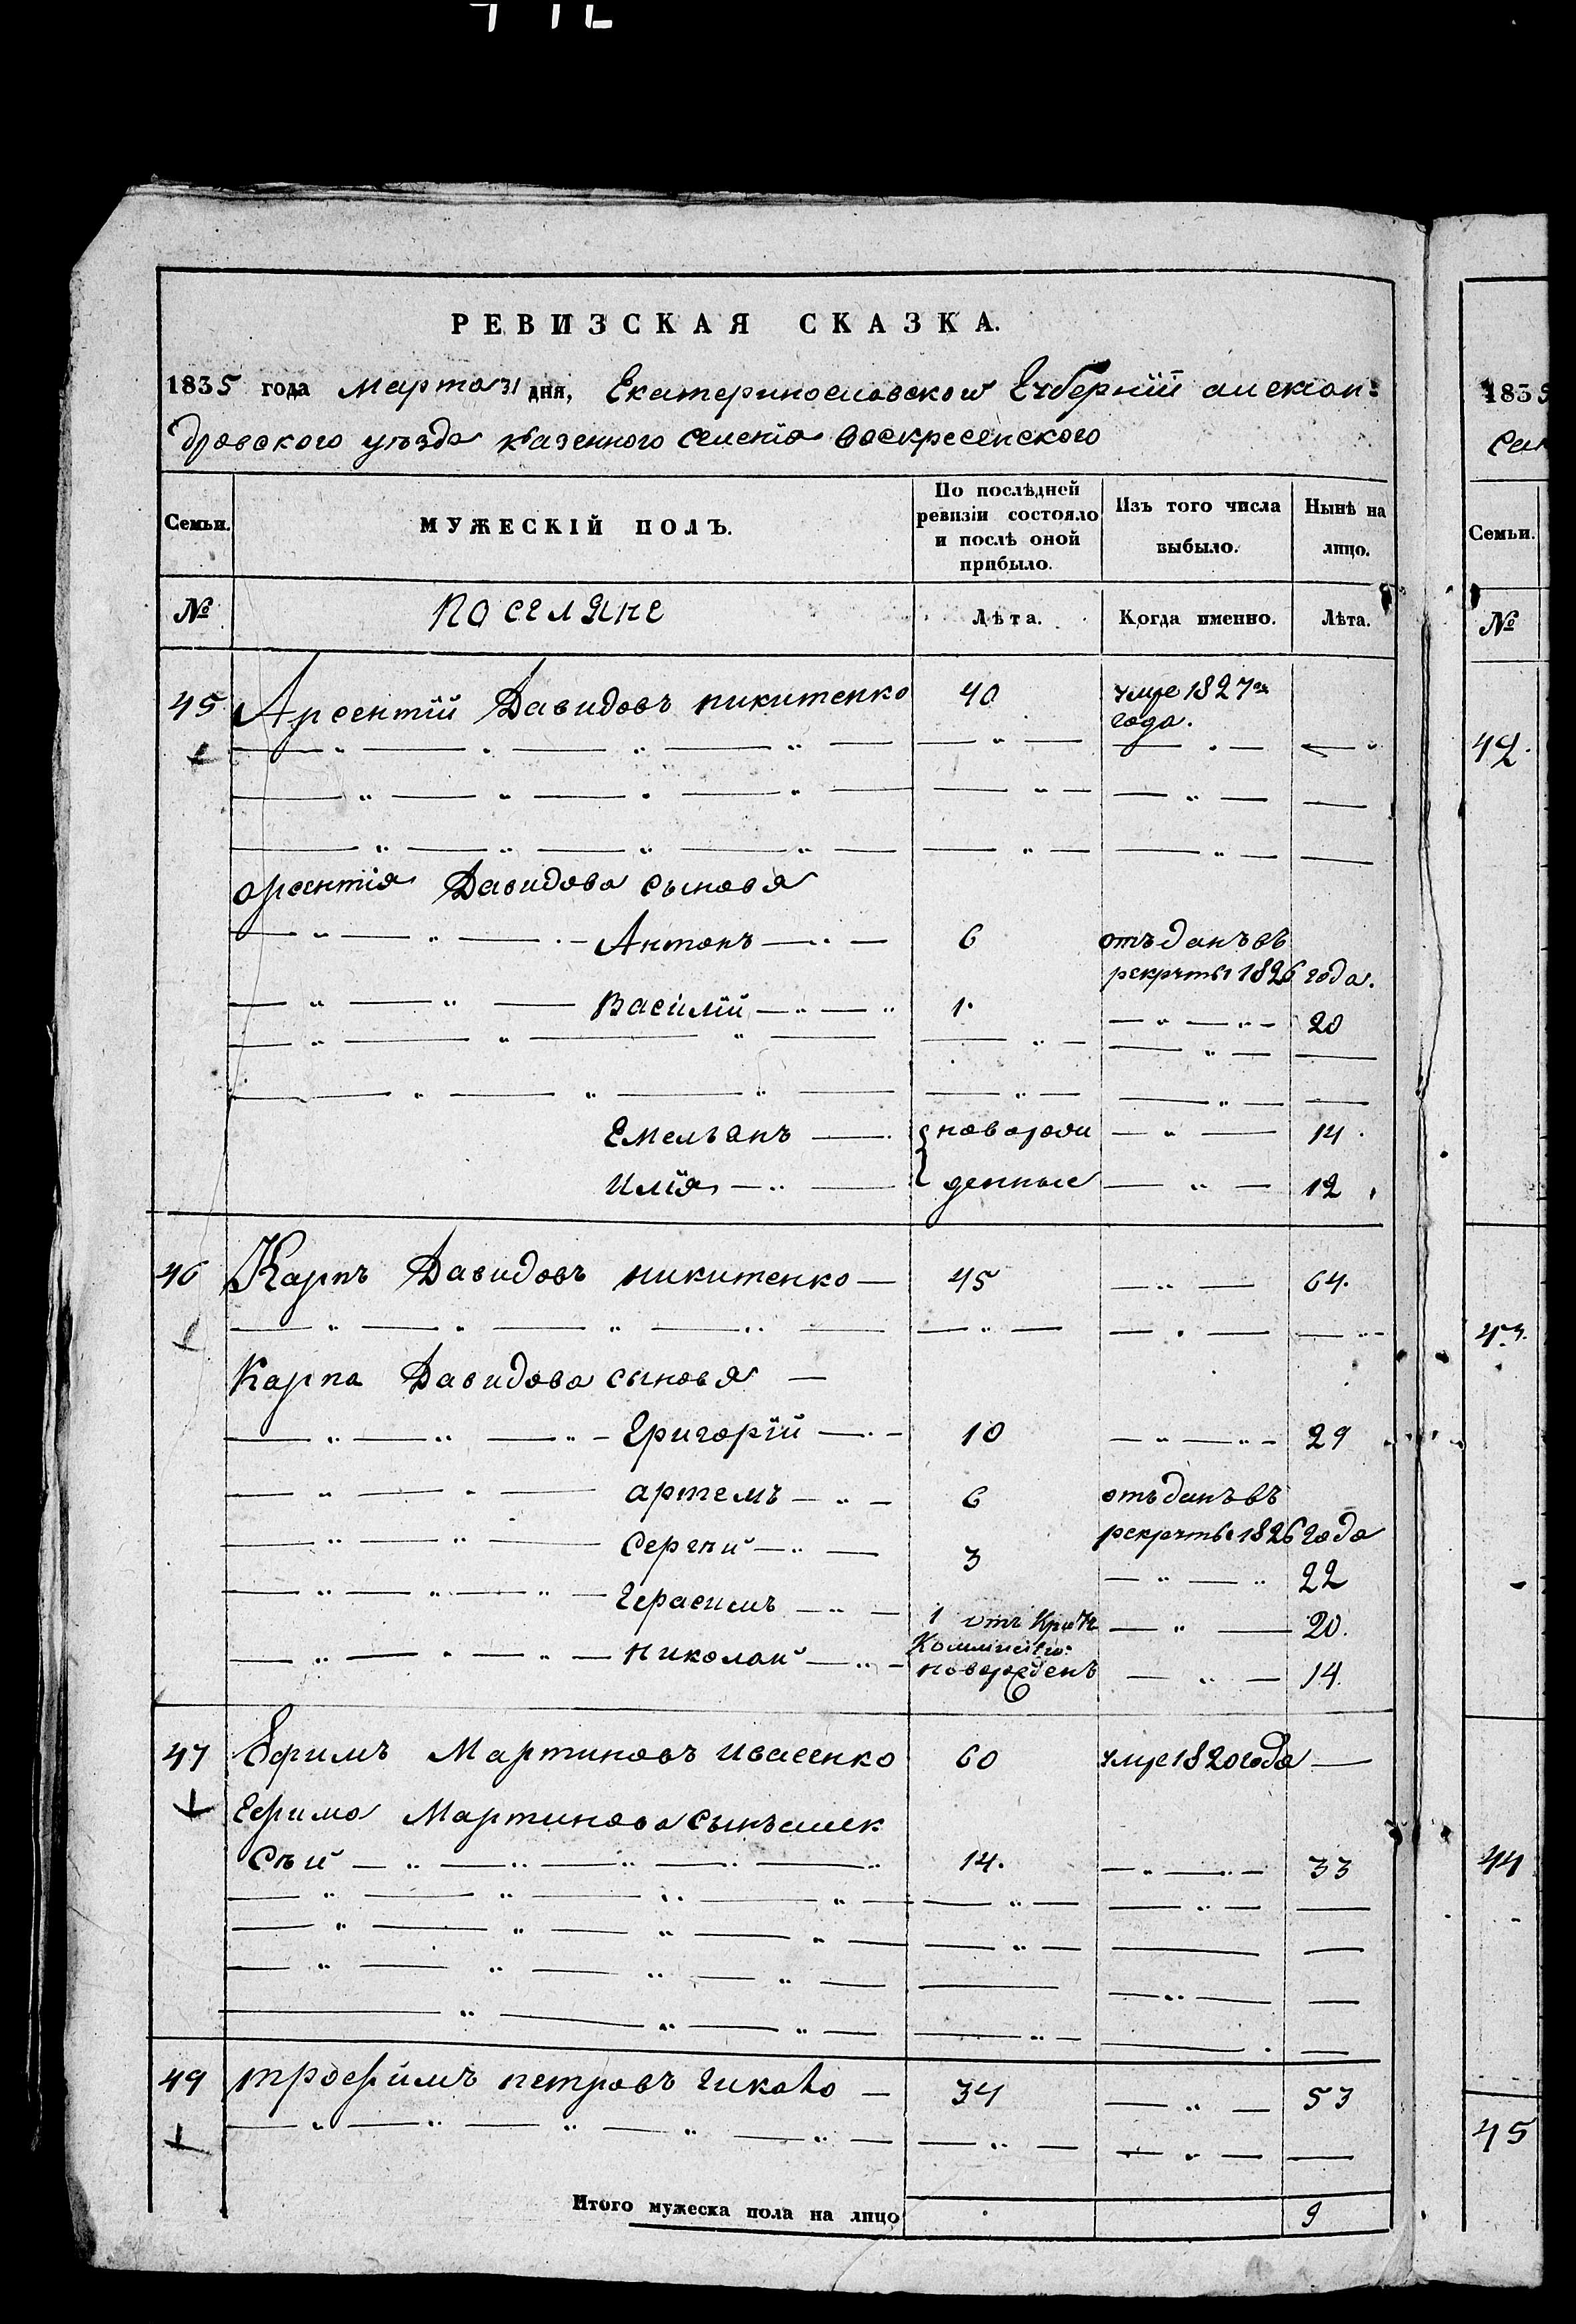 РЕВИЗСКАЯ СКАЗКА.
1835 года Марта 31 дня, Екатеринославской Губерніи алексан:
дровского уѣзда казенного селенія Воскресенского
Семьи.
МУЖЕСКІЙ ПОЛЪ.
По послѣдней
ревизіи состояло
и послѣ оной
прибыло.
Изъ того числа
выбыло.
Нынѣ на
лицо.
№
поселяне
Лѣта.
Когда именно.
Лѣта.
45 Арсентій Давидовъ никитенко 40 умре 1827го
года.
арсентія Давидова сыновя
Антонъ 6 отъданъ въ
рекруты 1826 года.
Василій 1. 20
Емельянъ новорож 14.
Илія денные 12
46 Карпъ Давидовъ никитенко 45 64.
Карпа Давидова сыновя
Григорій 10 29
артемъ 6 отъданъ въ
рекруты 1826 года
Сергѣй 3 22
Герасимъ 1 20.
Николай новорожденъ 14.
47 Ефимъ Мартиновъ ивасенко 60 умре 1820 года
Ефима Мартинова сынъ алек
сѣй 14. 33
49 трофимъ петровъ 34 53
Итого мужеска пола на лицо 9
1835
Семьи.
№
42.
43.
44
45